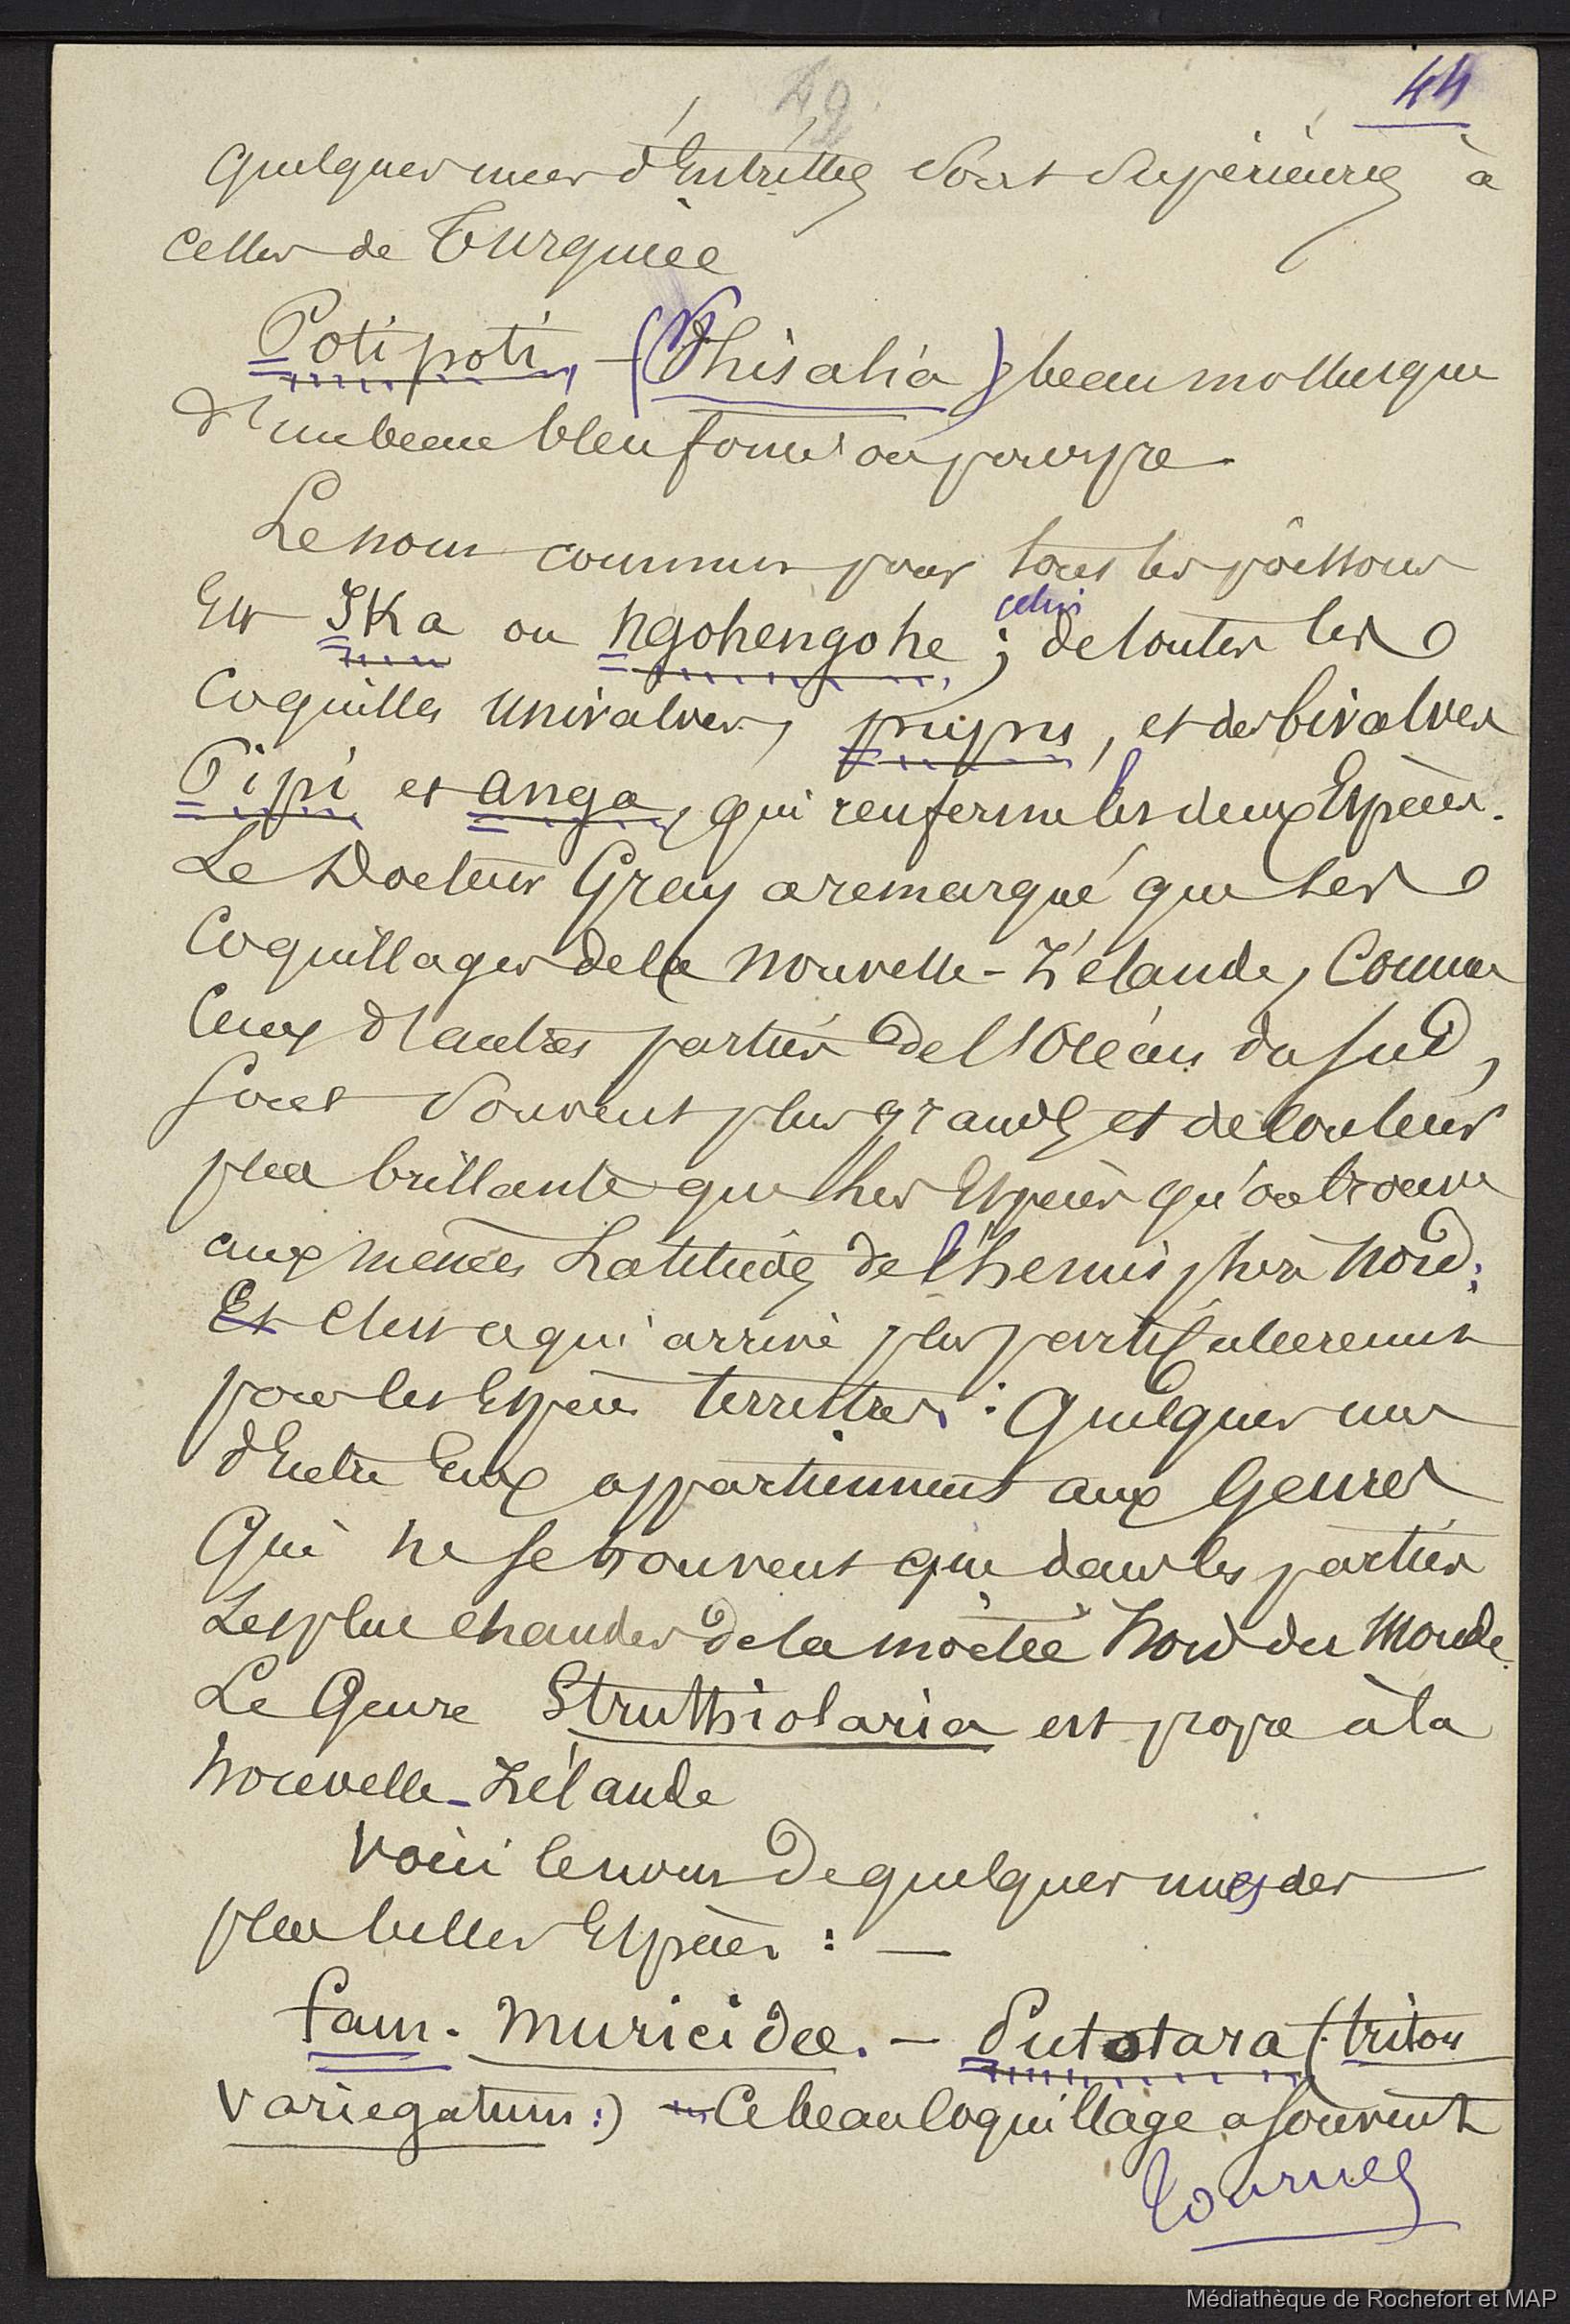 49.
44
Quelques unes d'Entr'Elles sont supérieures à
celles de Turquie
Potipoti, - (Phisalia) beau mollusque
d'un beau bleu foncé ou pourpre
Le nom commun pour tous les poissons
Est Ika ou ngohengohe ; celui de toutes les
Coquilles univalves, pupu, et des bivalves
Pipi et anga, qui renferme les deux Espèces.
Le Docteur Gray a remarqué que les
Coquillages de la Nouvelle-Zélande, Comme
Ceux d'autres parties de l'Océan du Sud,
sont souvent plus grands et de couleur
plus brillante que les Espèces qu'on trouve
aux mêmes Latitudes de l'hemisphère Nord;
Et c'est ce qui arrive plus particulièrement
pour les Espèces terrestres. Quelques uns
d'Entre Eux appartiennent aux Genres
Qui ne se trouvent que dans les parties
Les plus chaudes de la moitié Nord du Monde.
Le Genre Struthiolaria est propre à la
Nouvelle-Zélande
Voici le nom de quelques unes des
plus belles Espèces : —
fam. Muricidae. — Putotara (triton
variegatum:) — Ce beau Coquillage a souvent
Tournez
Médiathèque de Rochefort et MAP